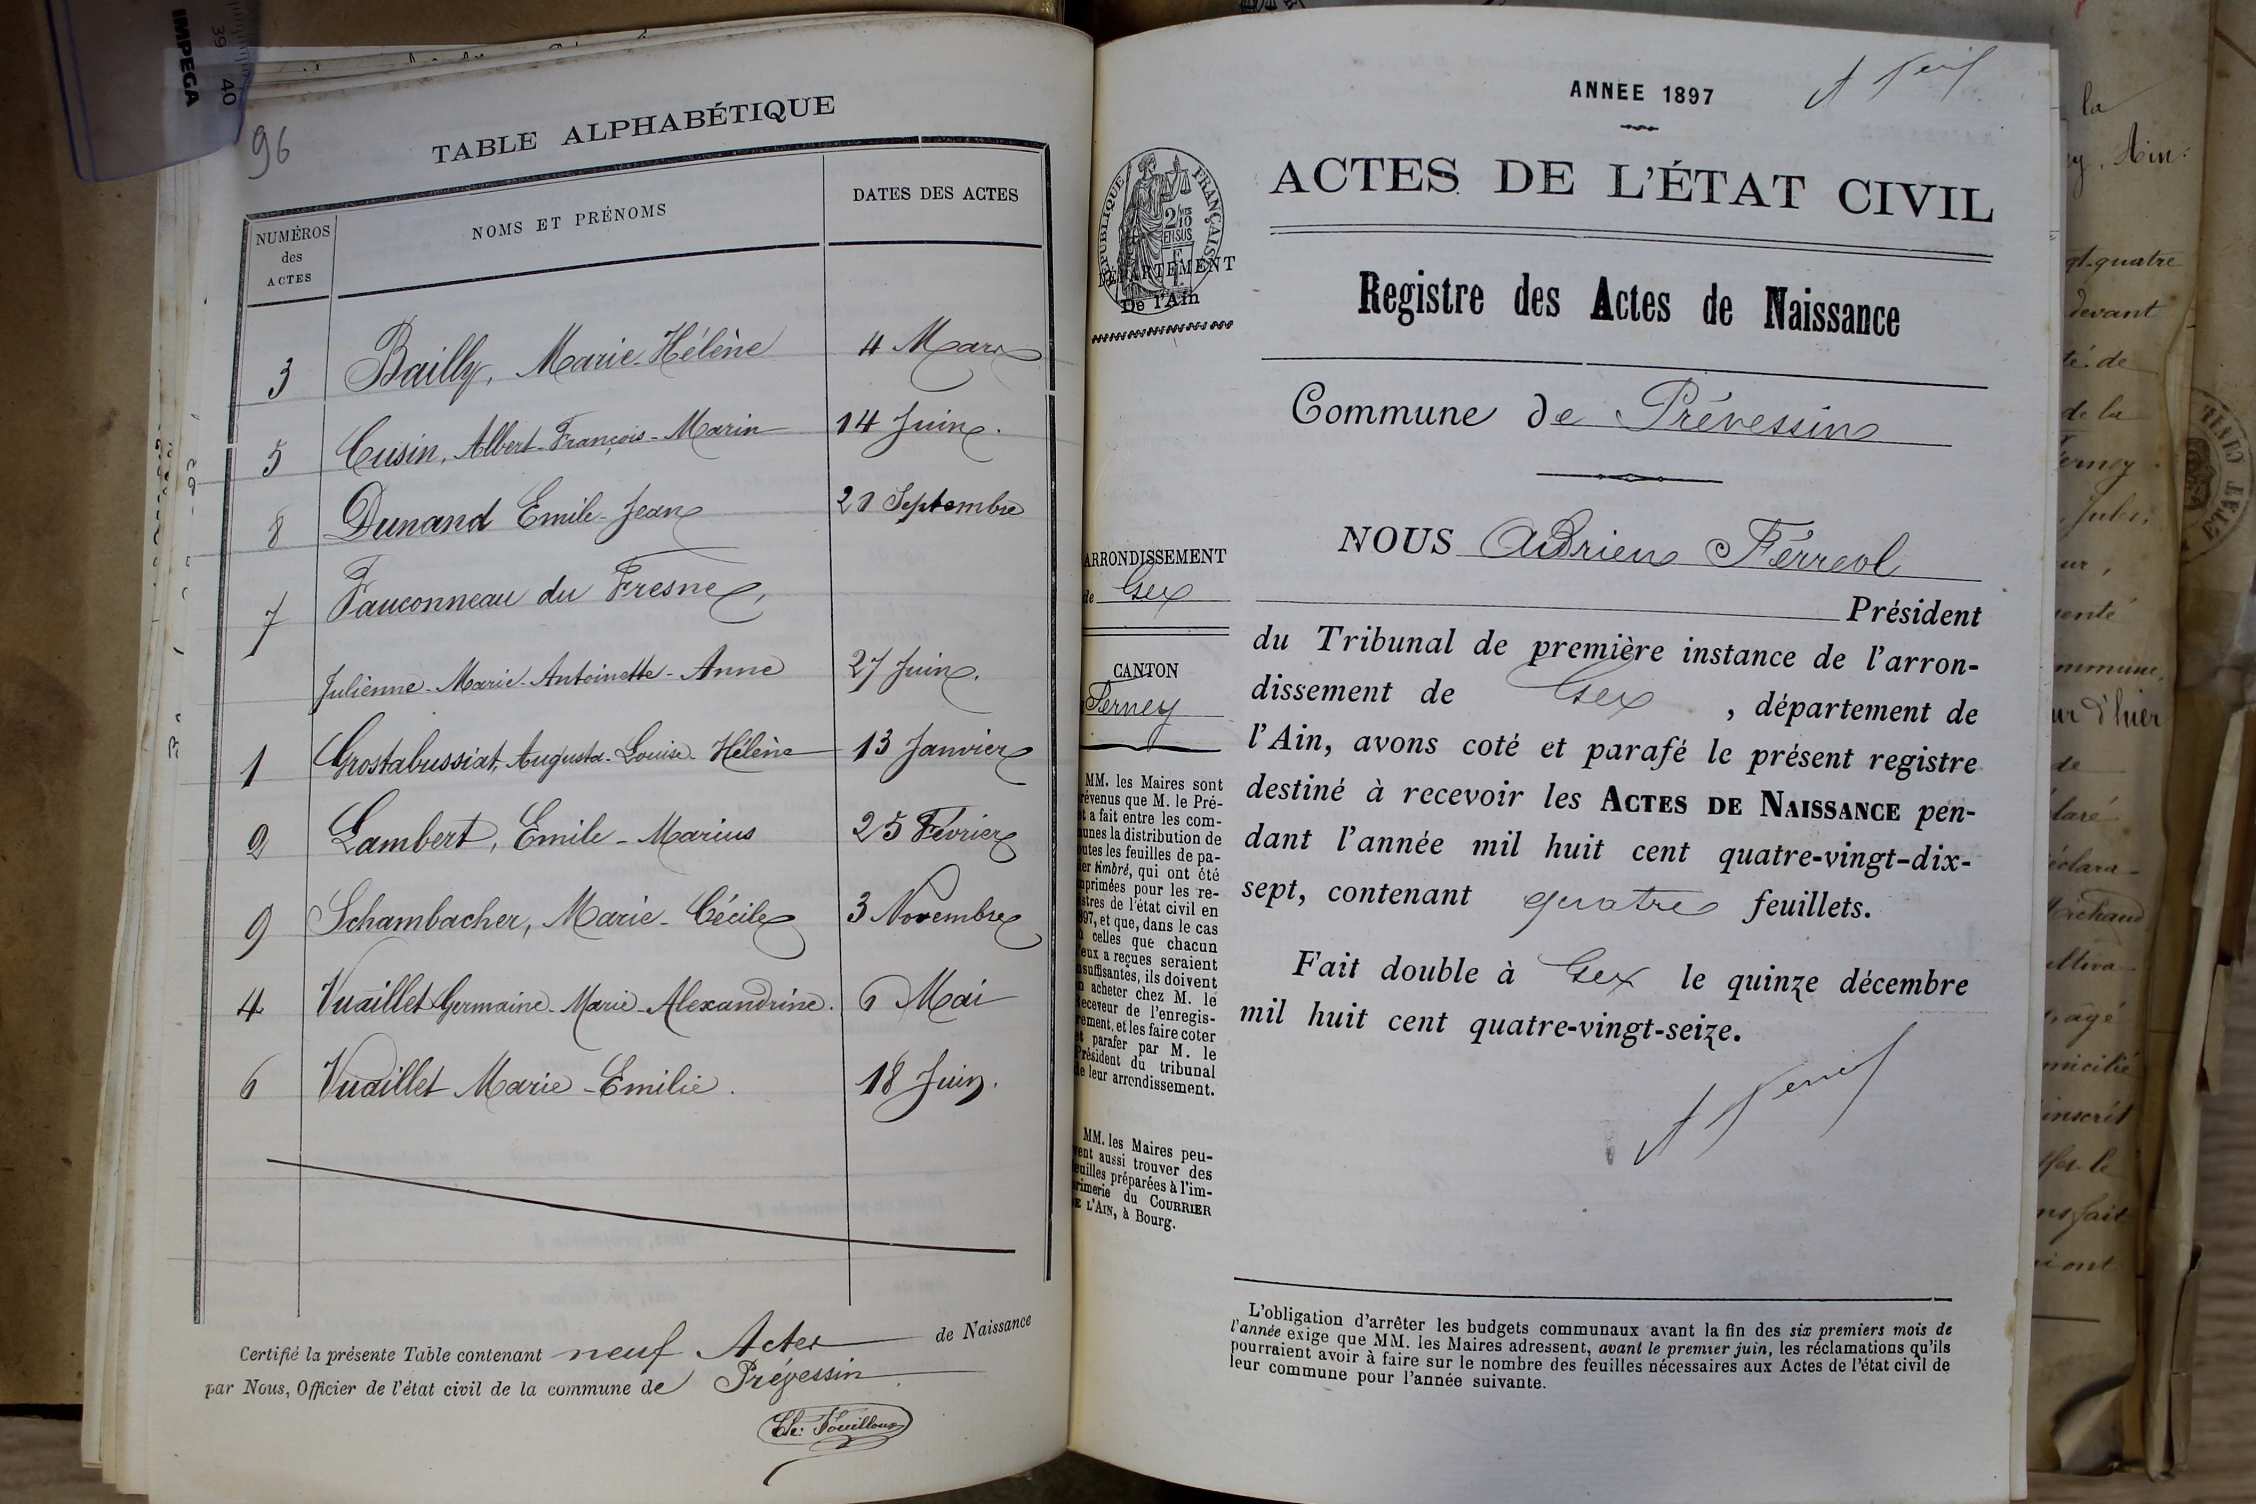 IMPEGA
39
40
96
TABLE ALPHABÉTIQUE
NUMÉROS des ACTES
NOMS ET PRÉNOMS
DATES DES ACTES
3 Bailly, Marie-Hélène 4 Mars
5 Cusin, Albert-François-Marin 14 Juin.
8 Dunand Emile-Jean 21 Septembre
7 Fauconneau du Fresne,
Julienne-Marie-Antoinette-Anne 27 Juin.
1 Grostabussiat, Augusta-Louise-Hélène 13 Janvier
2 Lambert, Emile-Marius 25 Février
9 Schambacher, Marie-Cécile 3 Novembre
4 Vuaillet Germaine-Marie-Alexandrine. 6 Mai
6 Vuaillet Marie-Emilie. 18 Juin.
Certifié la présente Table contenant neuf Actes de Naissance
par Nous, Officier de l'état civil de la commune de Prévessin
ANNEE 1897
ACTES DE L'ÉTAT CIVIL
RÉPUBLIQUE FRANÇAISE
2/10 EN SUS
DÉPARTEMENT
De l'Ain
Registre des Actes de Naissance
Commune de Prévessin
ARRONDISSEMENT
de Gex
CANTON
Ferney
MM. les Maires sont
prévenus que M. le Pré-
et a fait entre les com-
munes la distribution de
toutes les feuilles de pa-
pier timbré, qui ont été
imprimées pour les re-
gistres de l'état civil en
1897, et que, dans le cas
où celles que chacun
d'eux a reçues seraient
insuffisantes, ils doivent
en acheter chez M. le
Receveur de l'enregis-
trement, et les faire coter
et parafer par M. le
Président du tribunal
de leur arrondissement.
MM. les Maires peu-
vent aussi trouver des
feuilles préparées à l'im-
primerie du COURRIER
DE L'AIN, à Bourg.
NOUS Adrien Férreol
Président
du Tribunal de première instance de l'arron-
dissement de Gex, département de
l'Ain, avons coté et parafé le présent registre
destiné à recevoir les ACTES DE NAISSANCE pen-
dant l'année mil huit cent quatre-vingt-dix-
sept, contenant quatre feuillets.
Fait double à Gex le quinze décembre
mil huit cent quatre-vingt-seize.
L'obligation d'arrêter les budgets communaux avant la fin des six premiers mois de
l'année exige que MM. les Maires adressent, avant le premier juin, les réclamations qu'ils
pourraient avoir à faire sur le nombre des feuilles nécessaires aux Actes de l'état civil de
leur commune pour l'année suivante.
la
Ain.
devant
de la
Ferney
Jules,
d'hier
de
inscrit